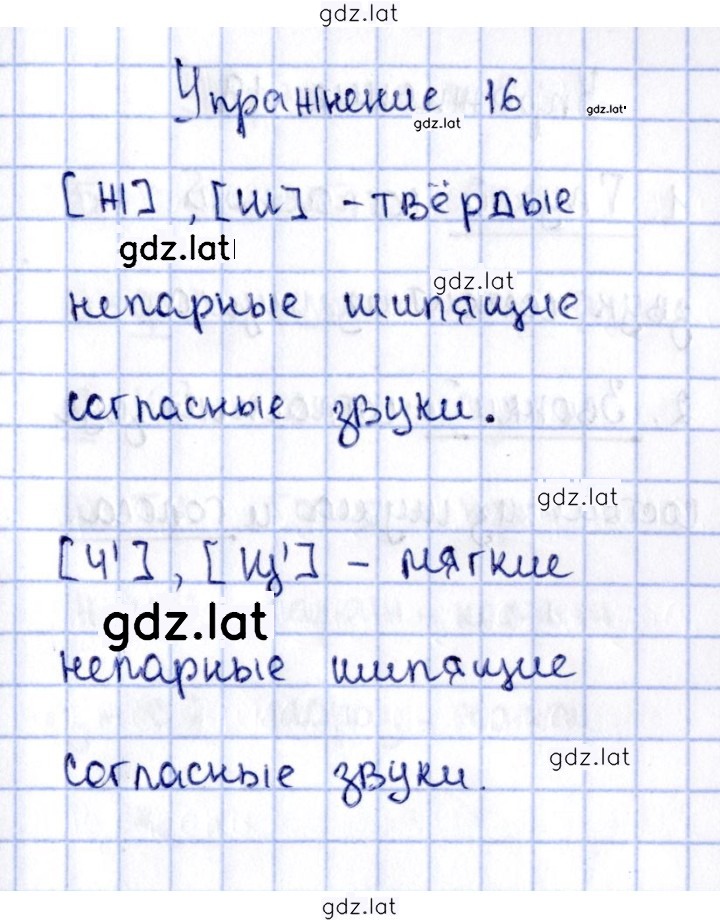 gdz.lat
Упражнение 16
gdz.lat
gdz.lat
[ж], [ш] - твёрдые
gdz.lat
gdz.lat
непарные шипящие
согласные звуки.
gdz.lat
[ч'], [щ'] - мягкие
gdz.lat
непарные шипящие
gdz.lat
согласные звуки.
gdz.lat